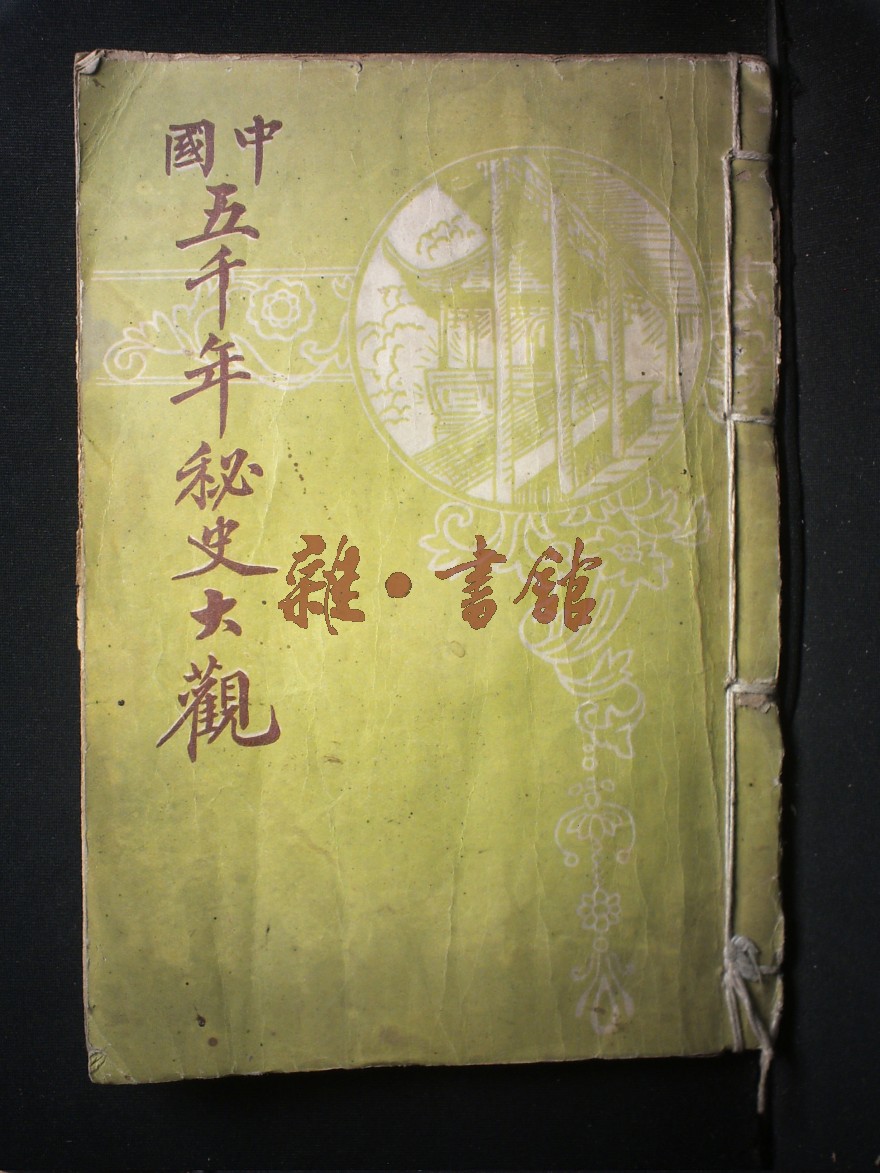 中國
五千年秘史大觀
雜·書館